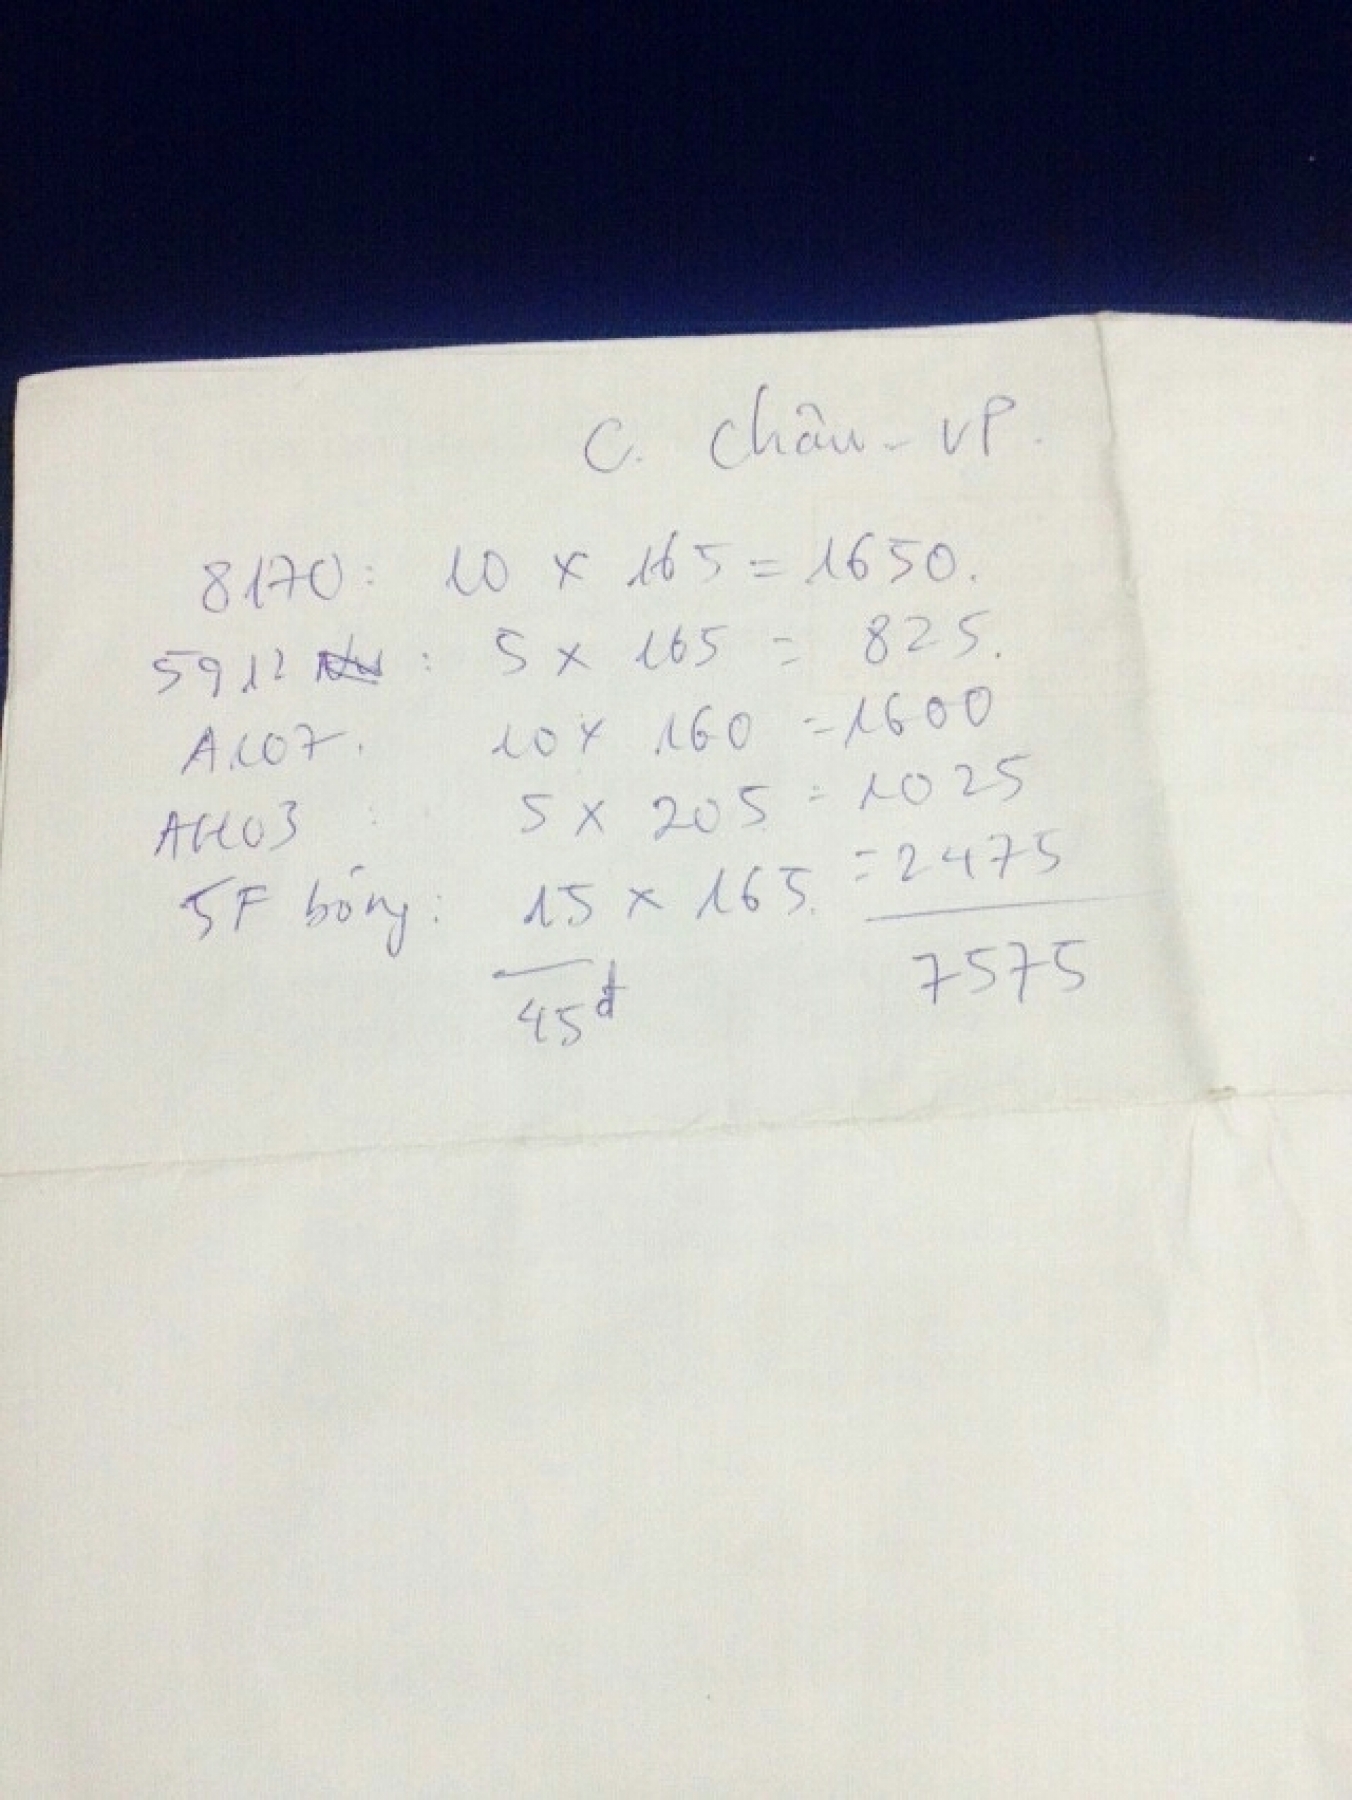 C. Châu - VP.
8170: 10 x 165 = 1650.
5912 : 5 x 165 = 825.
A107. 10 x 160 = 1600
: 5 x 205 = 1025
5F bóng: 15 x 165. = 2475
45đ 7575